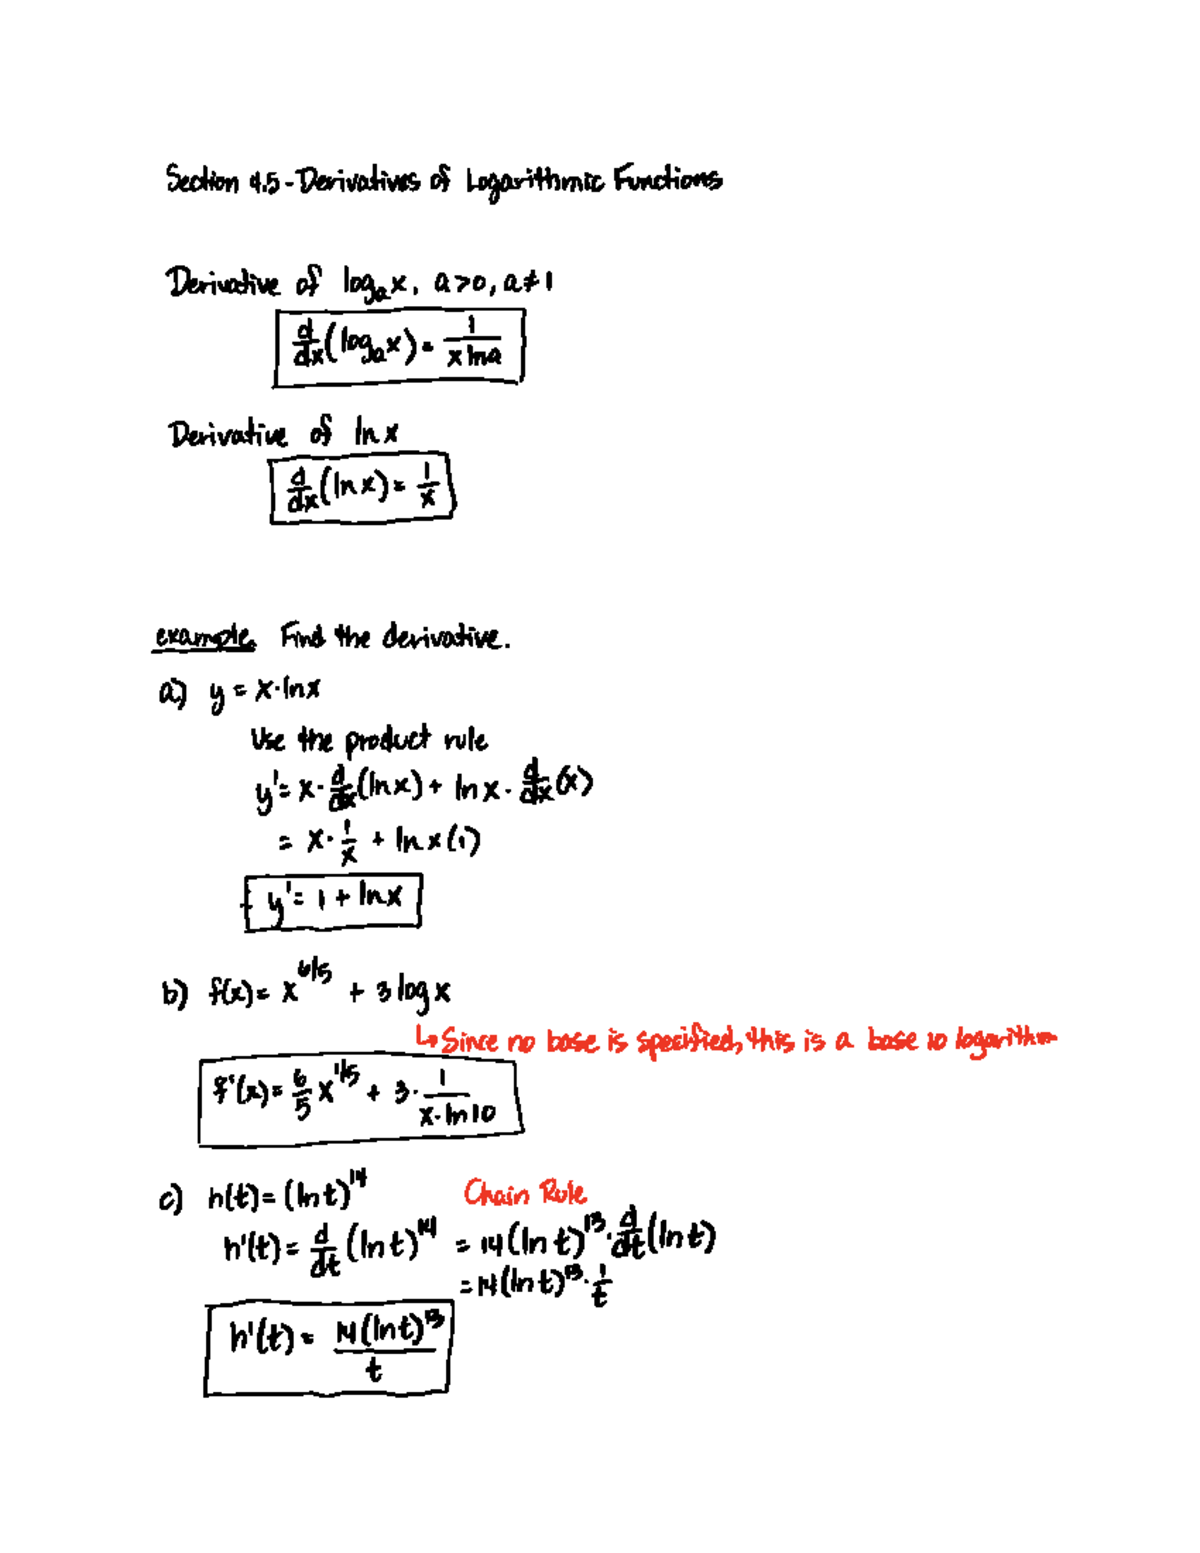 Section 4.5 - Derivatives of Logarithmic Functions
Derivative of logₐx, a>0, a≠1
d/dx(logₐx) = 1/(x ln a)
Derivative of ln x
d/dx(ln x) = 1/x
example. Find the derivative.
a) y = x·ln x
Use the product rule
y' = x·d/dx(ln x) + ln x · d/dx(x)
= x·1/x + ln x(1)
y' = 1 + ln x
b) f(x) = x^(6/5) + 3 log x
↳ Since no base is specified, this is a base 10 logarithm
f'(x) = 6/5 x^(1/5) + 3·1/(x·ln 10)
c) h(t) = (ln t)^14 Chain Rule
h'(t) = d/dt (ln t)^14 = 14(ln t)^13 · d/dt(ln t)
= 14(ln t)^13 · 1/t
h'(t) = 14(ln t)^13/t